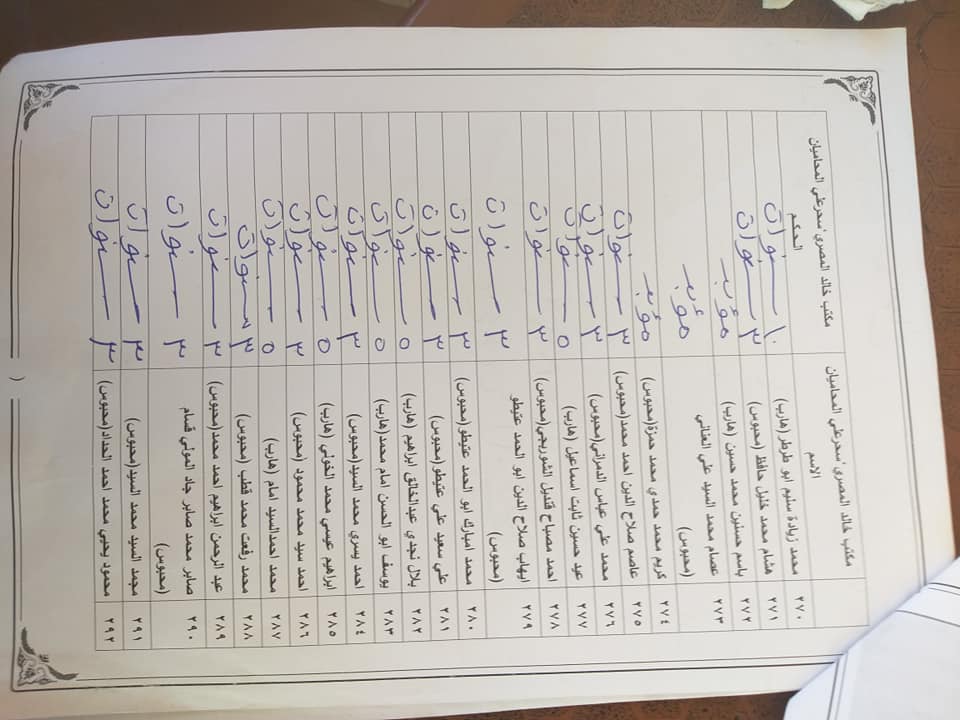 مكتب خالد المصري/سحر علي المحاميان مكتب خالد المصري/سحر علي المحاميان
الاسم الحكم
٢٧٠ محمد زيادة سليم ابو طرطر (هارب) ١٠ سنوات
٢٧١ هشام محمد خليل حافظ (محبوس) ٣ سنوات
٢٧٢ باسم حسنين محمد حسنين (هارب) مؤبد
٢٧٣ عصام محمد السيد علي العناني
(محبوس) مؤبد
٢٧٤ كريم محمد حمدي محمد حمزة(محبوس) مؤبد
٢٧٥ عاصم صلاح الدين احمد محمد(محبوس) ٣ سنوات
٢٧٦ محمد علي عباس الدمراني(محبوس) ٣ سنوات
٢٧٧ عيد حسين ثابت اسماعيل (هارب) ٥ سنوات
٢٧٨ احمد مصباح قنديل الشوربجي(محبوس) ٣ سنوات
٢٧٩ ايهاب صلاح الدين ابو الحمد عتيطو
(محبوس) ٣ سنوات
٢٨٠ محمد امبارك ابو الحمد عتيطو(محبوس) ٣ سنوات
٢٨١ علي سعيد علي عتيطو(محبوس) ٣ سنوات
٢٨٢ بلال نجدي عبدالخالق ابراهيم (هارب) ٥ سنوات
٢٨٣ يوسف ابو الحسن امام محمد(هارب) ٥ سنوات
٢٨٤ احمد يسري محمد السيد(محبوس) ٣ سنوات
٢٨٥ ابراهيم عيسي محمد الخولي (هارب) ٥ سنوات
٢٨٦ احمد سيد محمد محمود (محبوس) ٣ سنوات
٢٨٧ محمد احمدالسيد امام (هارب) ٥ سنوات
٢٨٨ محمد رفعت محمد قطب (محبوس) ٣ سنوات
٢٨٩ عبد الرحمن ابراهيم احمد محمد(محبوس) ٣ سنوات
٢٩٠ صابر محمد صابر جاد المولي قسام
(محبوس) ٣ سنوات
٢٩١ محمد السيد محمد السيد(محبوس) ٣ سنوات
٢٩٢ محمود يحيي محمد احمد الحداد(محبوس) ٣ سنوات